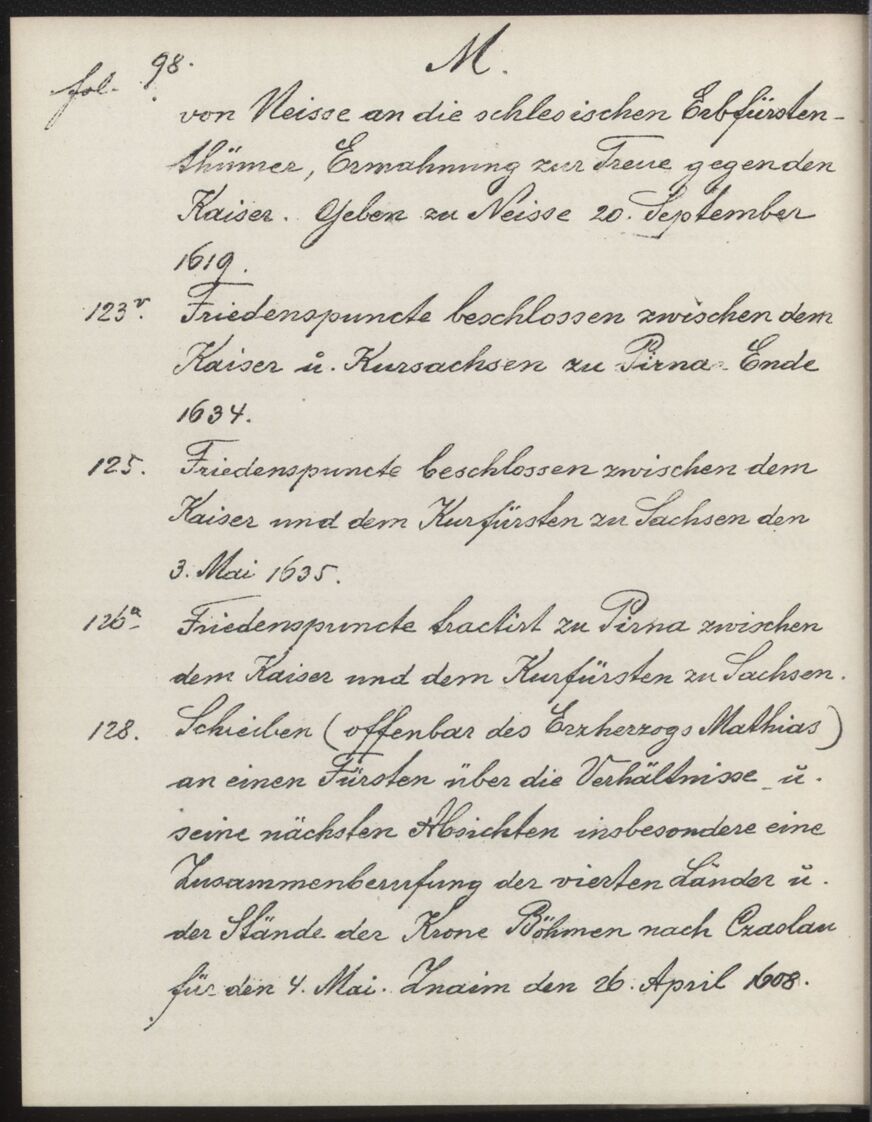 fol. 98. M.
von Neisse an die schlesischen Erbfürsten-
thümer, Ermahnung zur Treue gegen den
Kaiser. Geben zu Neisse 20. September
1619.
123v. Friedenspuncte beschlossen zwischen dem
Kaiser u. Kursachsen zu Pirna Ende
1634.
125. Friedenspuncte beschlossen zwischen dem
Kaiser und dem Kurfürsten zu Sachsen den
3. Mai 1635.
126a Friedenspuncte tractirt zu Pirna zwischen
dem Kaiser und dem Kurfürsten zu Sachsen.
128. Schreiben (offenbar des Erzherzogs Mathias)
an einen Fürsten über die Verhältnisse u.
seine nächsten Absichten insbesondere eine
Zusammenberufung der vierten Länder u.
der Stände der Krone Böhmen nach Czaslau
für den 4. Mai. Znaim den 26. April 1608.